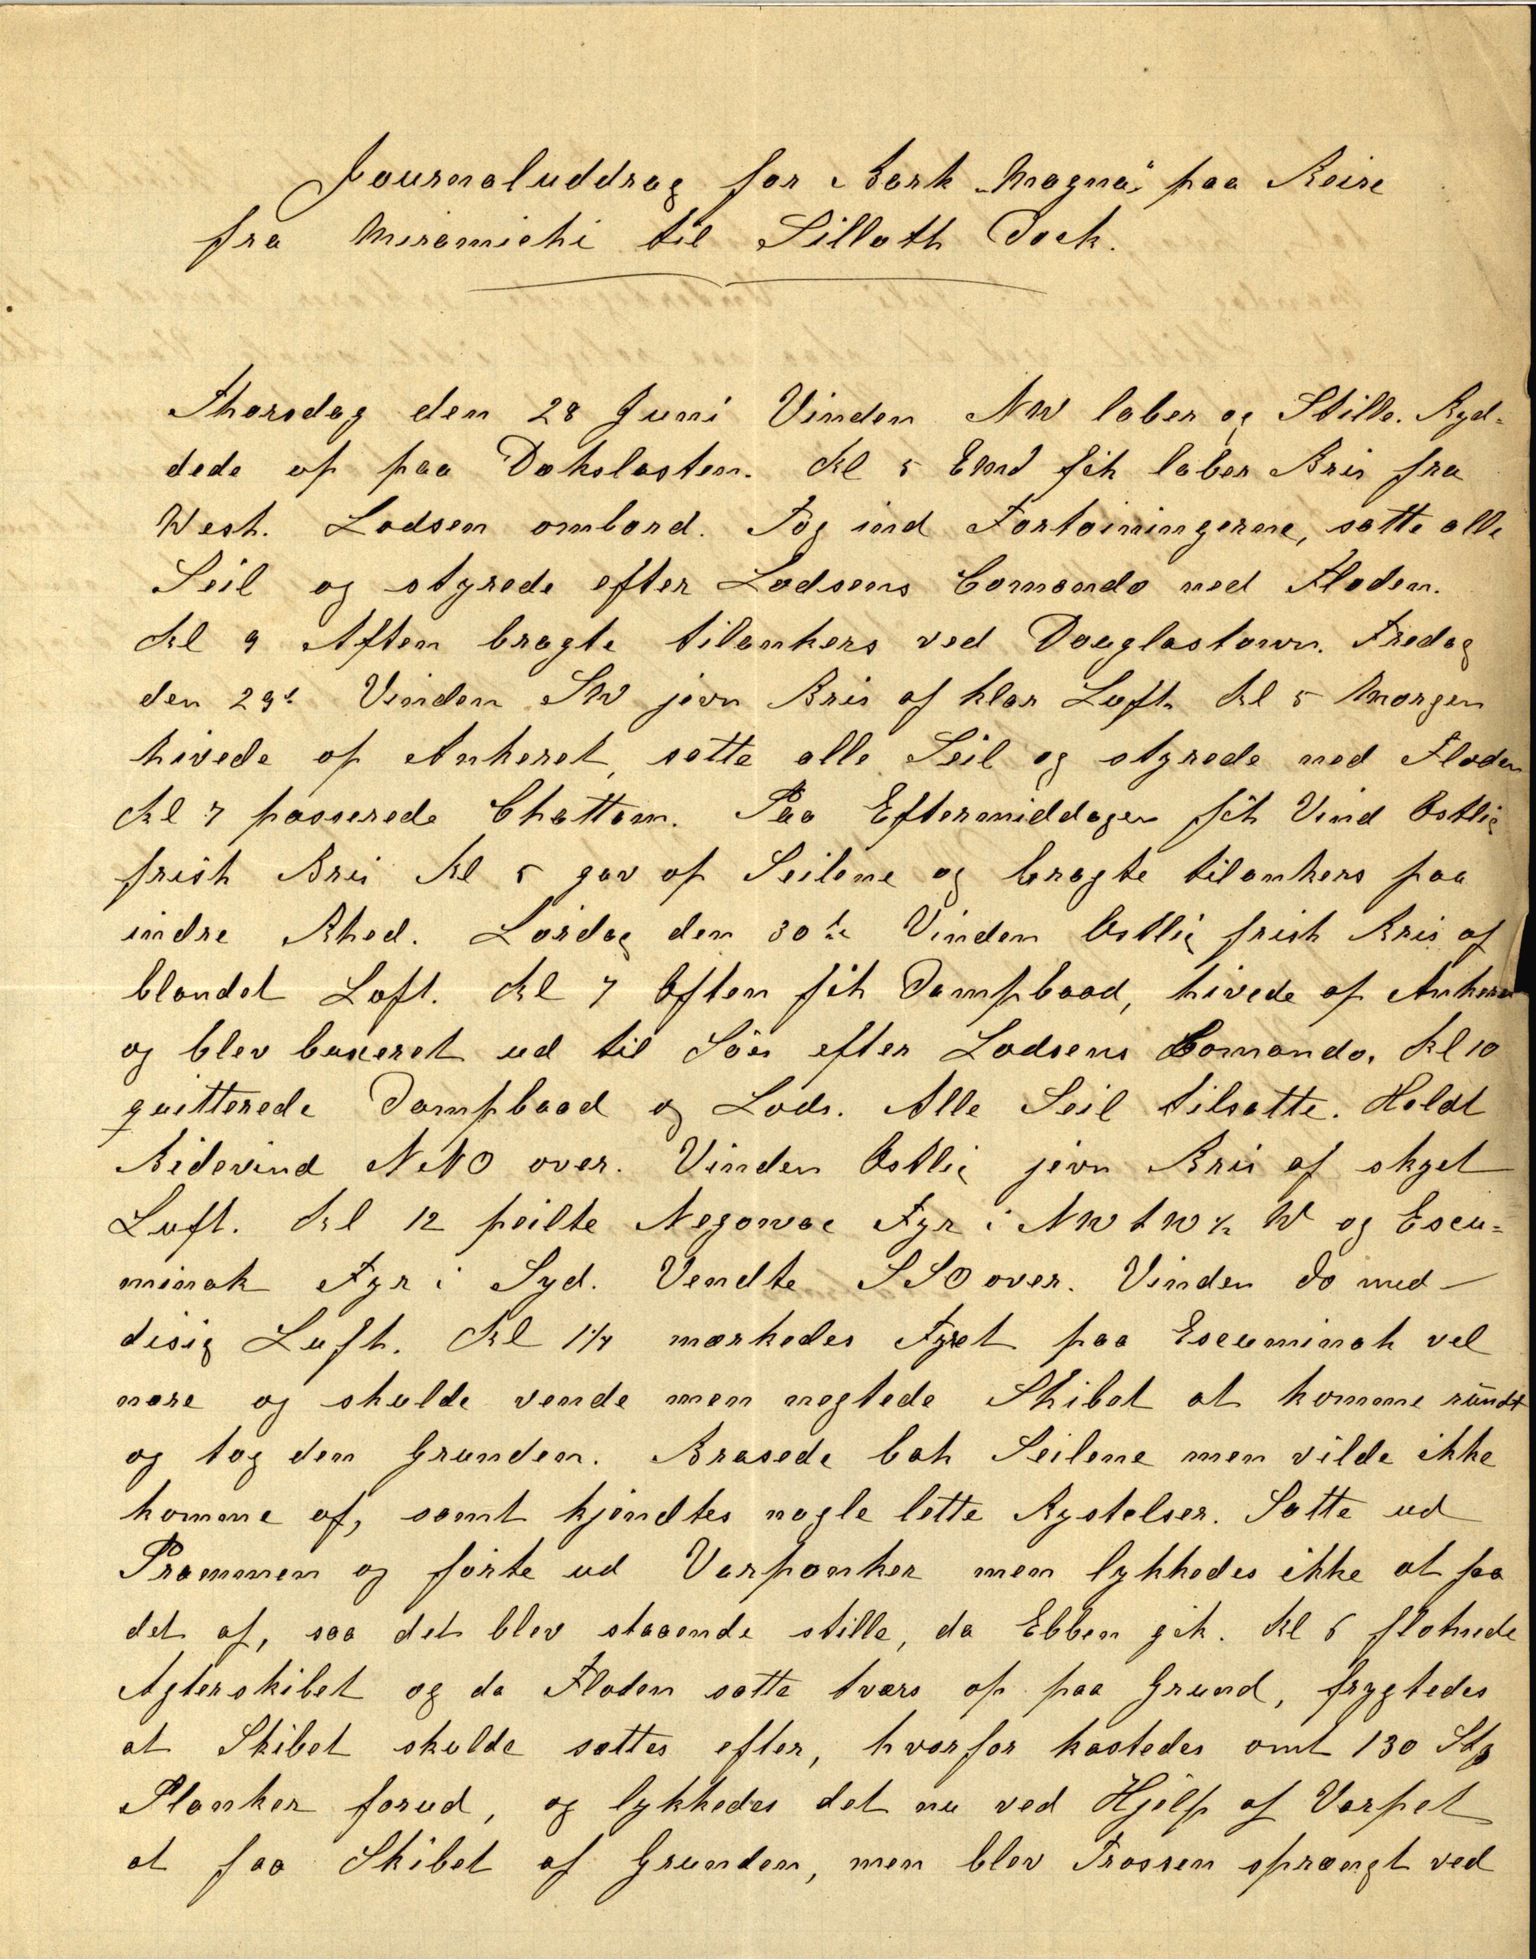 Journaluddrag for Bark "Magna" paa Reise
fra Miramichi til Silloth Dock.
Thorsdag den 28 Juni Vinden NW laber og Stille. Ryd-
dede op paa Dækslasten. Kl 5 EMd fik laber Bris fra
West. Lodsen ombord. Tog ind Fortøiningerne, satte alle
Seil og styrede efter Lodsens Comando ned Floden.
Kl 9 Aften bragte tilankers ved Douglastown. Fredag
den 29de Vinden SW jevn Bris af klar Luft Kl 5 Morgen
hivede op Ankeret, satte alle Seil og styrede ned Floden
Kl 7 passerede Chattam. Paa Eftermiddagen fik Vind Østlig
frisk Bris Kl 5 gav op Seilene og bragte tilankers paa
indre Rhed. Lørdag den 30te Vinden Østlig frisk Bris af
blandet Luft. Kl 7 Aften fik Dampbaad, hivede op Ankeret
og blev buxeret ud til Søes efter Lodsens Comando. Kl 10
quitterede Dampbaad og Lods. Alle Seil tilsatte. Holdt
Bidevind NNO over. Vinden Østlig jevn Bris af skyet
Luft. Kl 12 peilte Negowac Fyr i NWtW½W og Escu-
minak Fyr i Syd. Vendte SSO over. Vinden do med
disig Luft. Kl 1¼ mærkedes Fyret paa Escuminak vel
nære og skulde vende men negtede Skibet at komme rundt
og tog den Grunden. Brasede bak Seilene men vilde ikke
komme af, samt kjendtes nogle lette Rystelser. Satte ud
Prammen og førte ud Varpanker men lykkedes ikke at faa
det af, saa det blev staaende stille, da Ebben gik. Kl 5 flotnede
Agterskibet og da Floden satte tvers op paa Grund, frygtedes
at Skibet skulde sættes efter, hvorfor kastedes omt 130 Stk
Planker forud, og lykkedes det nu ved Hjelp af Varpet
at faa Skibet af Grunden, men blev Trossen sprængt ved